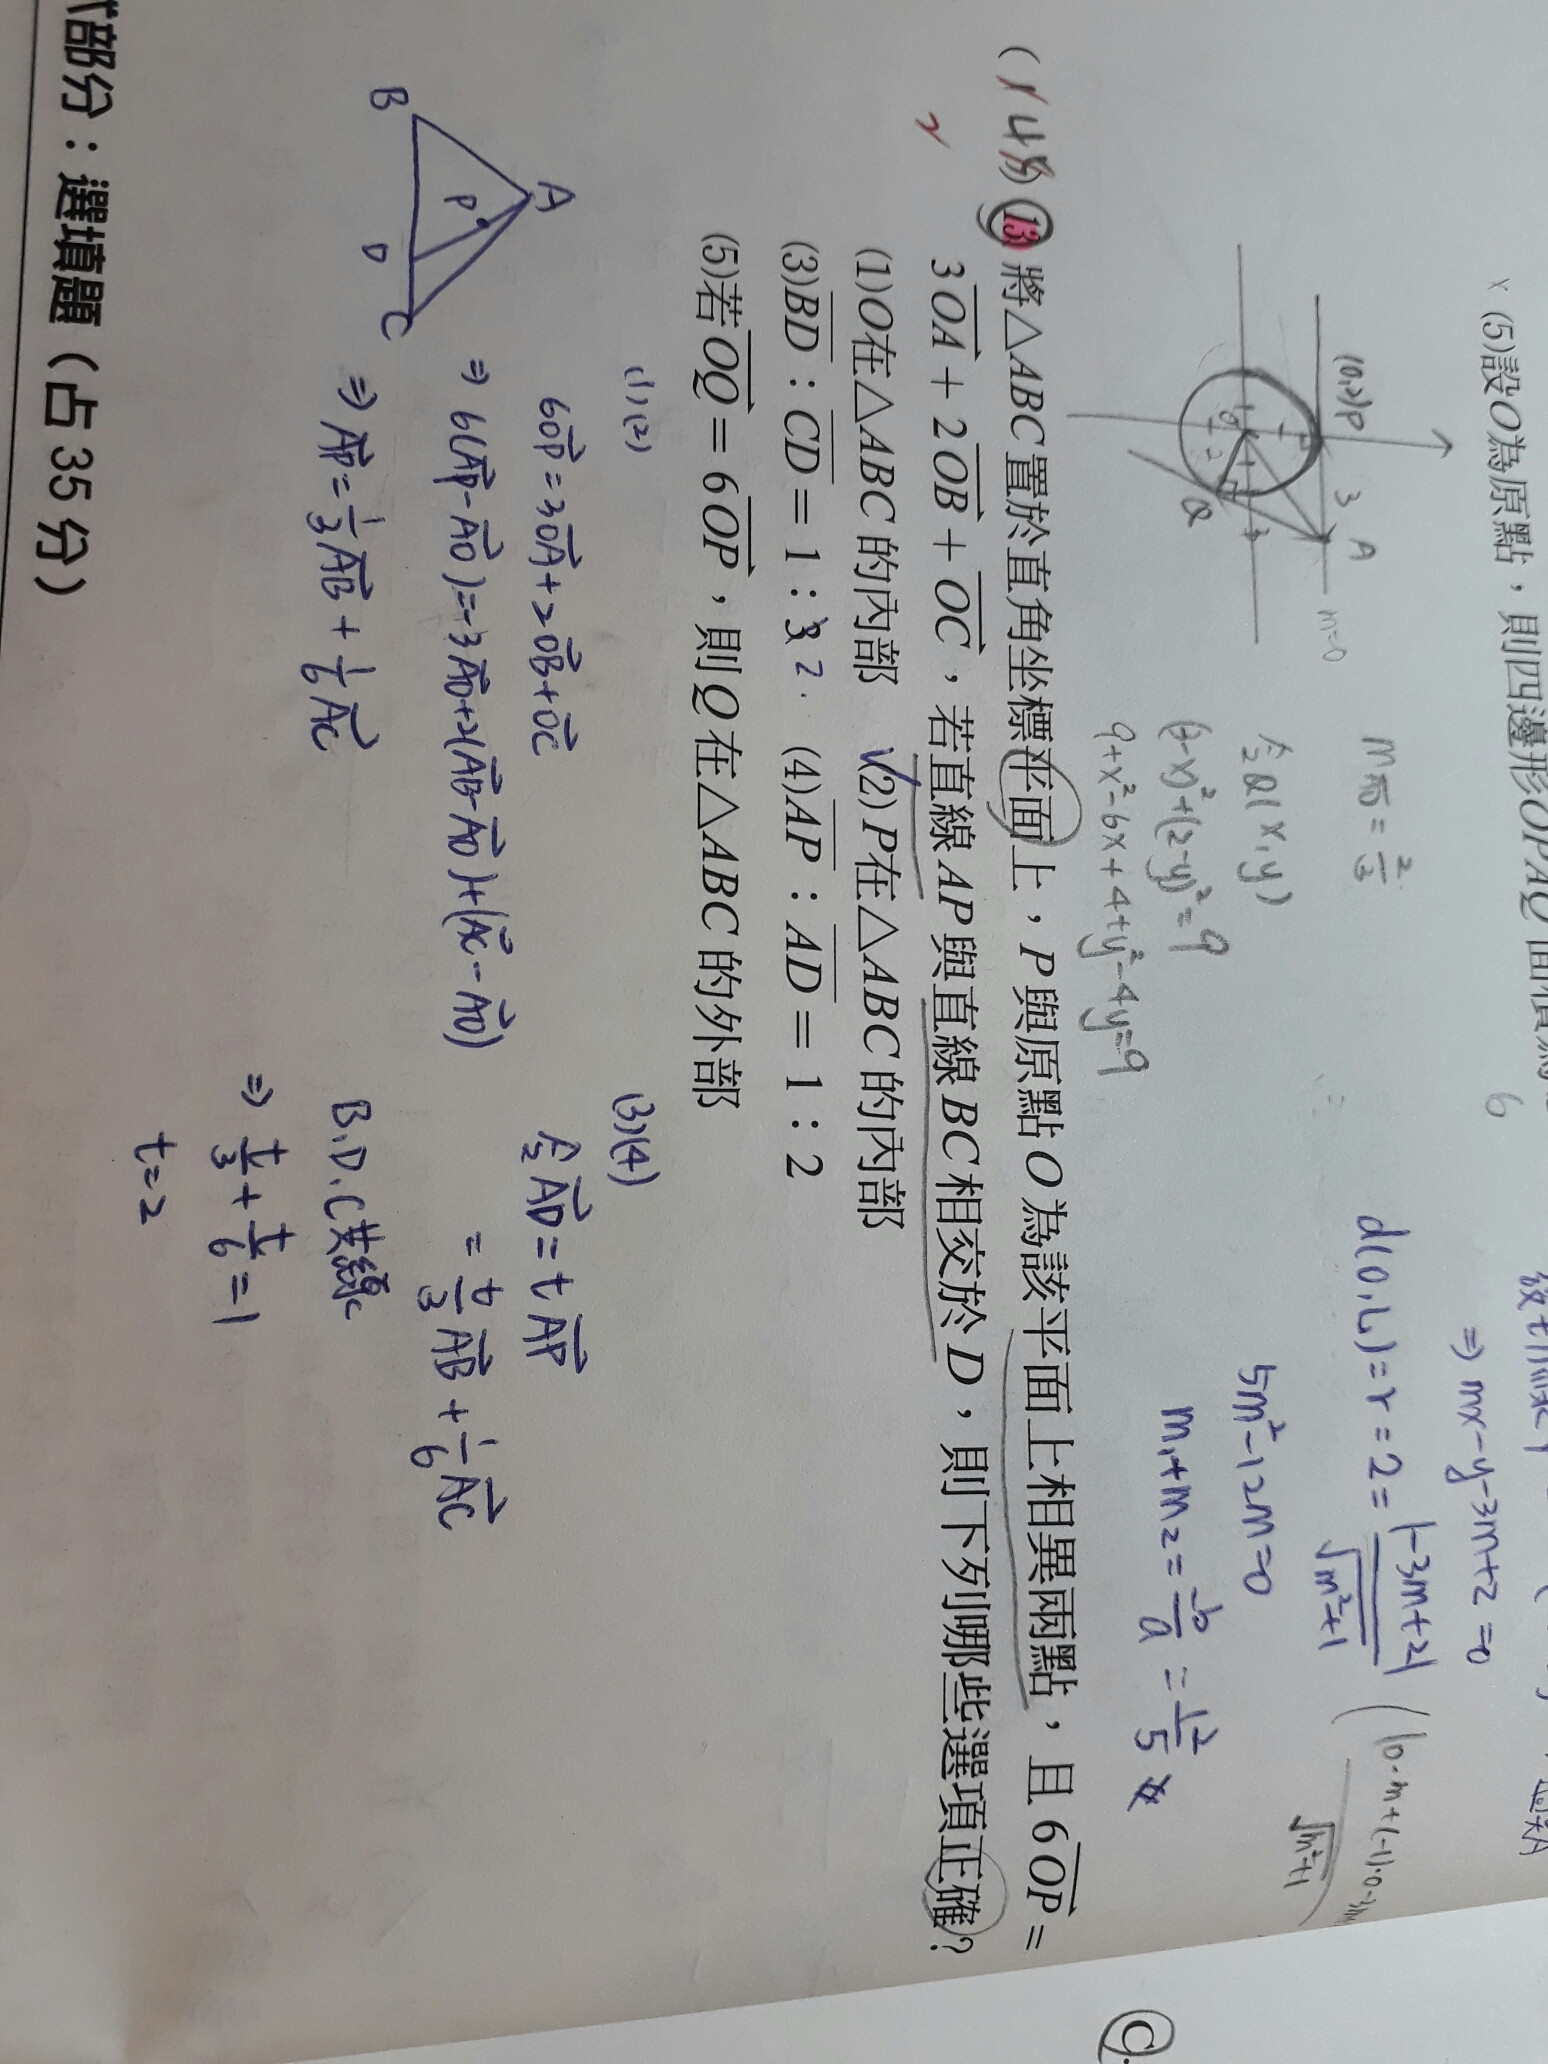 ×(5)設O為原點，則四邊形OPAQ面積為
6
(0,2)P
3
A
m=0
Q
2
3
令Q(x,y)
(3-x)²+(2-y)²=9
9+x²-6x+4+y²-4y=9
⇒ mx-y-3m+2=0
d(0,L)=r=2=|-3m+2|/√m²+1
5m²-12m=0
m₁+m₂=-b/a=12/5
(14
2
13 將△ABC置於直角坐標平面上，P與原點O為該平面上相異兩點，且6OP=
3OA+2OB+OC，若直線AP與直線BC相交於D，則下列哪些選項正確？
(1)O在△ABC的內部 √(2)P在△ABC的內部
(3)BD：CD=1：3 2. (4)AP：AD=1：2
(5)若OQ=6OP，則Q在△ABC的外部
(1)(2)
6OP=3OA+2OB+OC
⇒ 6(AP-AO)=-3AO+2(AB-AO)+(AC-AO)
⇒ AP=1/3AB+1/6AC
A
P
B
D
C
(3)(4)
令AD=tAP
=t/3AB+1/6AC
B,D,C共線
⇒ t/3+t/6=1
t=2
部分：選填題（占35分）
C.